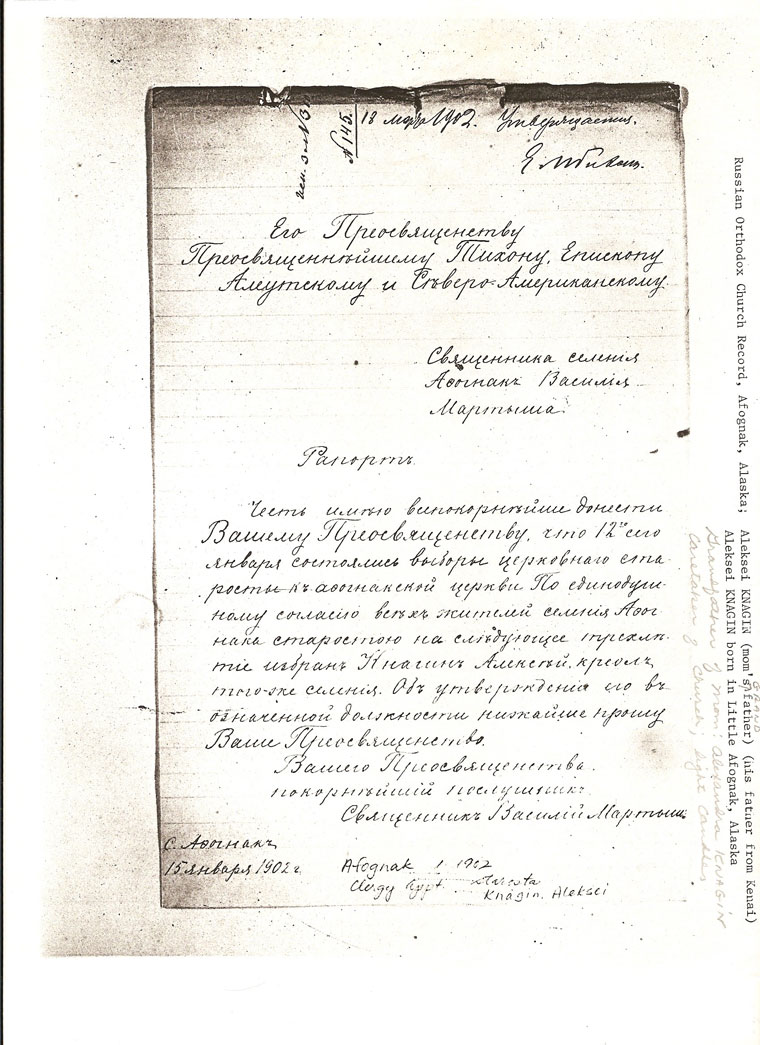 №145.
18 мар 1902. Утверждается.
Е. Тихон.
Его Преосвященству
Преосвященнѣйшему Тихону, Епископу
Алеутскому и Сѣверо-Американскому.
Священника селенія
Афогнакъ Василія
Мартыша.
Рапортъ.
Честь имѣю всепокорнѣйше донести
Вашему Преосвященству, что 12го сего
января состоялись выборы церковнаго ста-
росты къ афогнакской церкви. По единодуш-
ному согласію всѣхъ жителей селенія Афог-
нака старостою на слѣдующее трехлѣ-
тіе избранъ Кнагинъ Алексѣй, креолъ
того-же селенія. Объ утвержденіи его въ
означенной должности нижайше прошу
Ваше Преосвященство.
Вашего Преосвященства
покорнѣйшій послушникъ
Священникъ Василій Мартышъ
С. Афогнакъ
15 января 1902 г.
Afognak 1 1902
Clergy rppt. starosta
Knagin. Aleksei
Russian Orthodox Church Record, Afognak, Alaska; Aleksei KNAGIN (mom's GRAND father) (his father from Kenai)
Aleksei KNAGIN born in Little Afognak, Alaska
Grandfather of mom: Alexandra KNAGIN
Caretaker of Church; light candles